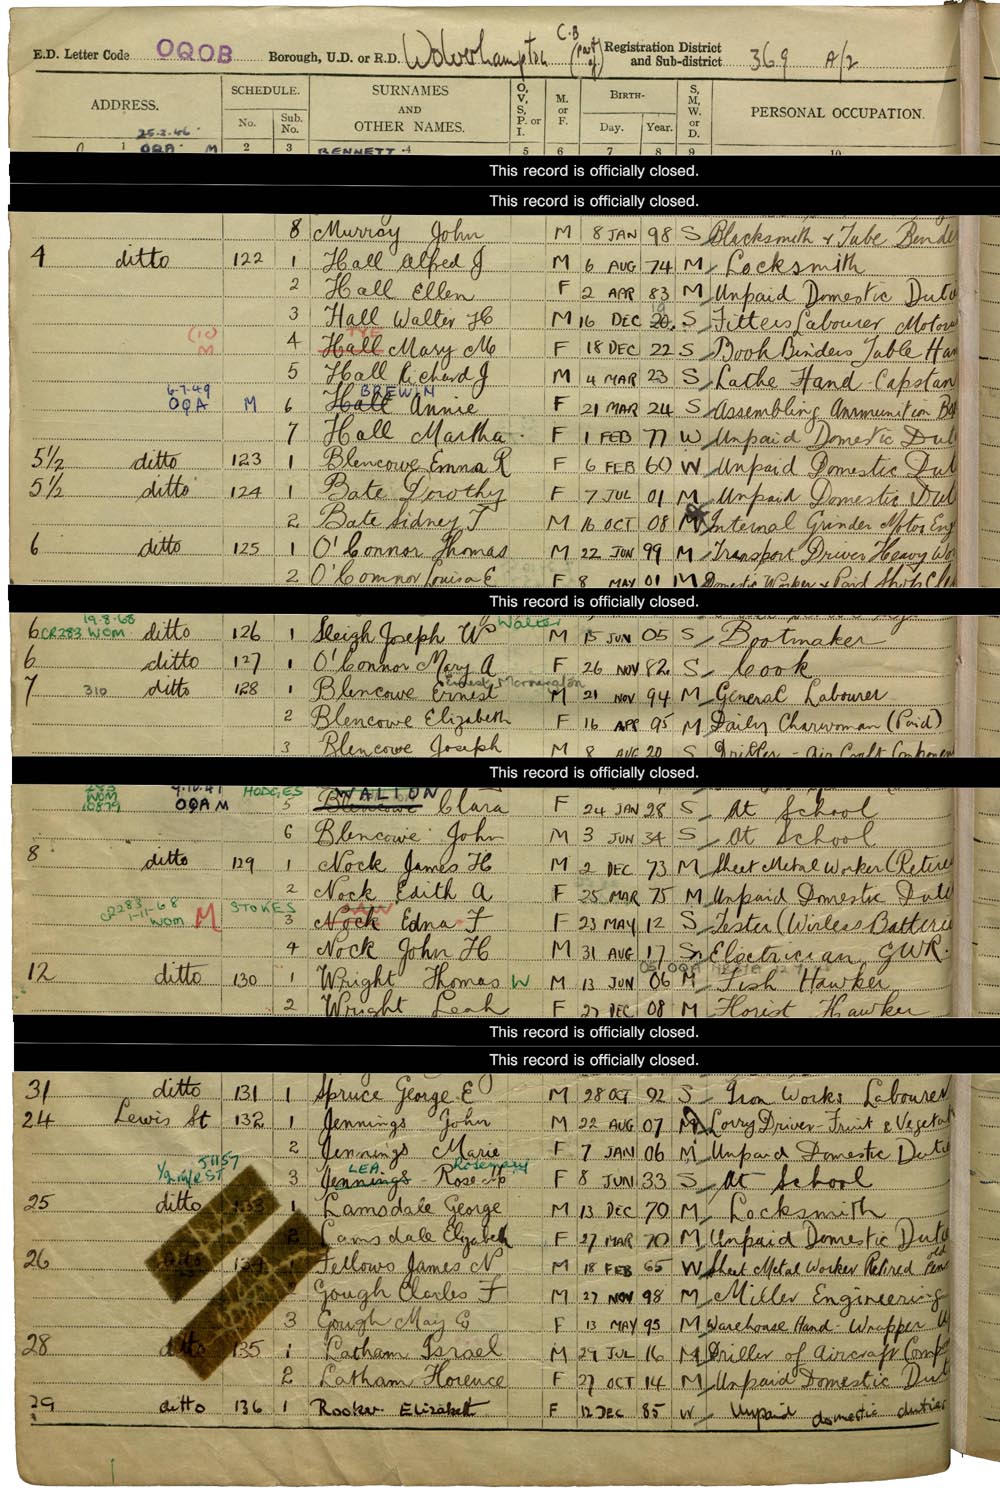 E.D. Letter Code OQOB Borough, U.D. or R.D. Wolverhampton C.B (part of) Registration District and Sub-district 369 A/2
ADDRESS. SCHEDULE. No. Sub. No. SURNAMES AND OTHER NAMES. O, V, S, P. or I. M. or F. BIRTH- Day. Year. S, M, W. or D. PERSONAL OCCUPATION.
25.2.46
1 OQA M 2 3 BENNETT 4 5 6 7 8 9 10
This record is officially closed.
This record is officially closed.
8 Murray John M 8 JAN 98 S Blacksmith & Tube Bende
4 ditto 122 1 Hall Alfred J M 6 AUG 74 M Locksmith
2 Hall Ellen F 2 APR 83 M Unpaid Domestic Dutie
3 Hall Walter H M 16 DEC 20. S Fitters Labourer Motor
TYE
M 4 Hall Mary M F 18 DEC 22 S Book Binders Table Han
5 Hall Richard J M 4 MAR 23 S Lathe Hand Capstan
6.7.49 BREWIN
OQA M 6 Hall Annie F 21 MAR 24 S Assembling Ammunition
7 Hall Martha F 1 FEB 77 W Unpaid Domestic Dut
5½ ditto 123 1 Blencowe Emma R F 6 FEB 60 W Unpaid Domestic Dut
5½ ditto 124 1 Bate Dorothy F 7 JUL 01 M Unpaid Domestic Dut
2 Bate Sidney T M 16 OCT 08 M Internal Grinder Motor Eng
6 ditto 125 1 O'Connor Thomas M 22 JUN 99 M Transport Driver Heavy Wo
2 O'Connor Louisa E F 8 MAY 01 M Domestic Worker & Paid
This record is officially closed.
19.8.68
6 CR283 WOM ditto 126 1 Sleigh Joseph W Walter M 15 JUN 05 S Bootmaker
6 ditto 127 1 O'Connor Mary A F 26 NOV 82 S Cook
7 310 ditto 128 1 Blencowe Ernest M 21 NOV 94 M General Labourer
2 Blencowe Elizabeth F 16 APR 95 M Daily Charwoman (Paid)
3 Blencowe Joseph M 8 AUG 20 S Driller - Air Craft Componen
This record is officially closed.
WOM HODGES WALTON
OQA M 5 Blencowe Clara F 24 JAN 28 S At School
6 Blencowe John M 3 JUN 34 S At School
8 ditto 129 1 Nock James H M 2 DEC 73 M Sheet Metal Worker (Retire
2 Nock Edith A F 25 MAR 75 M Unpaid Domestic Duti
CR283 1-11-68 WOM M STOKES
3 Nock Edna F F 23 MAY 12 S Tester (Wirless Batterie
4 Nock John H M 31 AUG 17 S Electrician GWR.
12 ditto 130 1 Wright Thomas W M 13 JUN 06 M Fish Hawker
2 Wright Leah F 27 DEC 08 M Florist Hawker
This record is officially closed.
This record is officially closed.
31 ditto 131 1 Spruce George E M 28 OCT 92 S Iron Works Labourer
24 Lewis St 132 1 Jennings John M 22 AUG 07 M Lorry Driver - Fruit & Vegetab
2 Jennings Marie F 7 JAN 06 M Unpaid Domestic Dutie
51157 LEA Rosemary
3 Jennings Rose M F 8 JUN 33 S At School
25 ditto 133 1 Lamsdale George M 13 DEC 70 M Locksmith
2 Lamsdale Elizabeth F 27 MAR 70 M Unpaid Domestic Dutie
26 ditto 134 1 Fellows James N M 18 FEB 65 W Sheet Metal Worker Retired Old Pen
Gough Charles F M 27 NOV 98 M Miller Engineering
3 Gough May E F 13 MAY 95 M Warehouse Hand - Wrapper
28 ditto 135 1 Latham Israel M 29 JUL 16 M Driller of Aircraft Comp
2 Latham Florence F 27 OCT 14 M Unpaid Domestic Dut
29 ditto 136 1 Rooker Elizabeth F 12 DEC 85 W Unpaid domestic duties